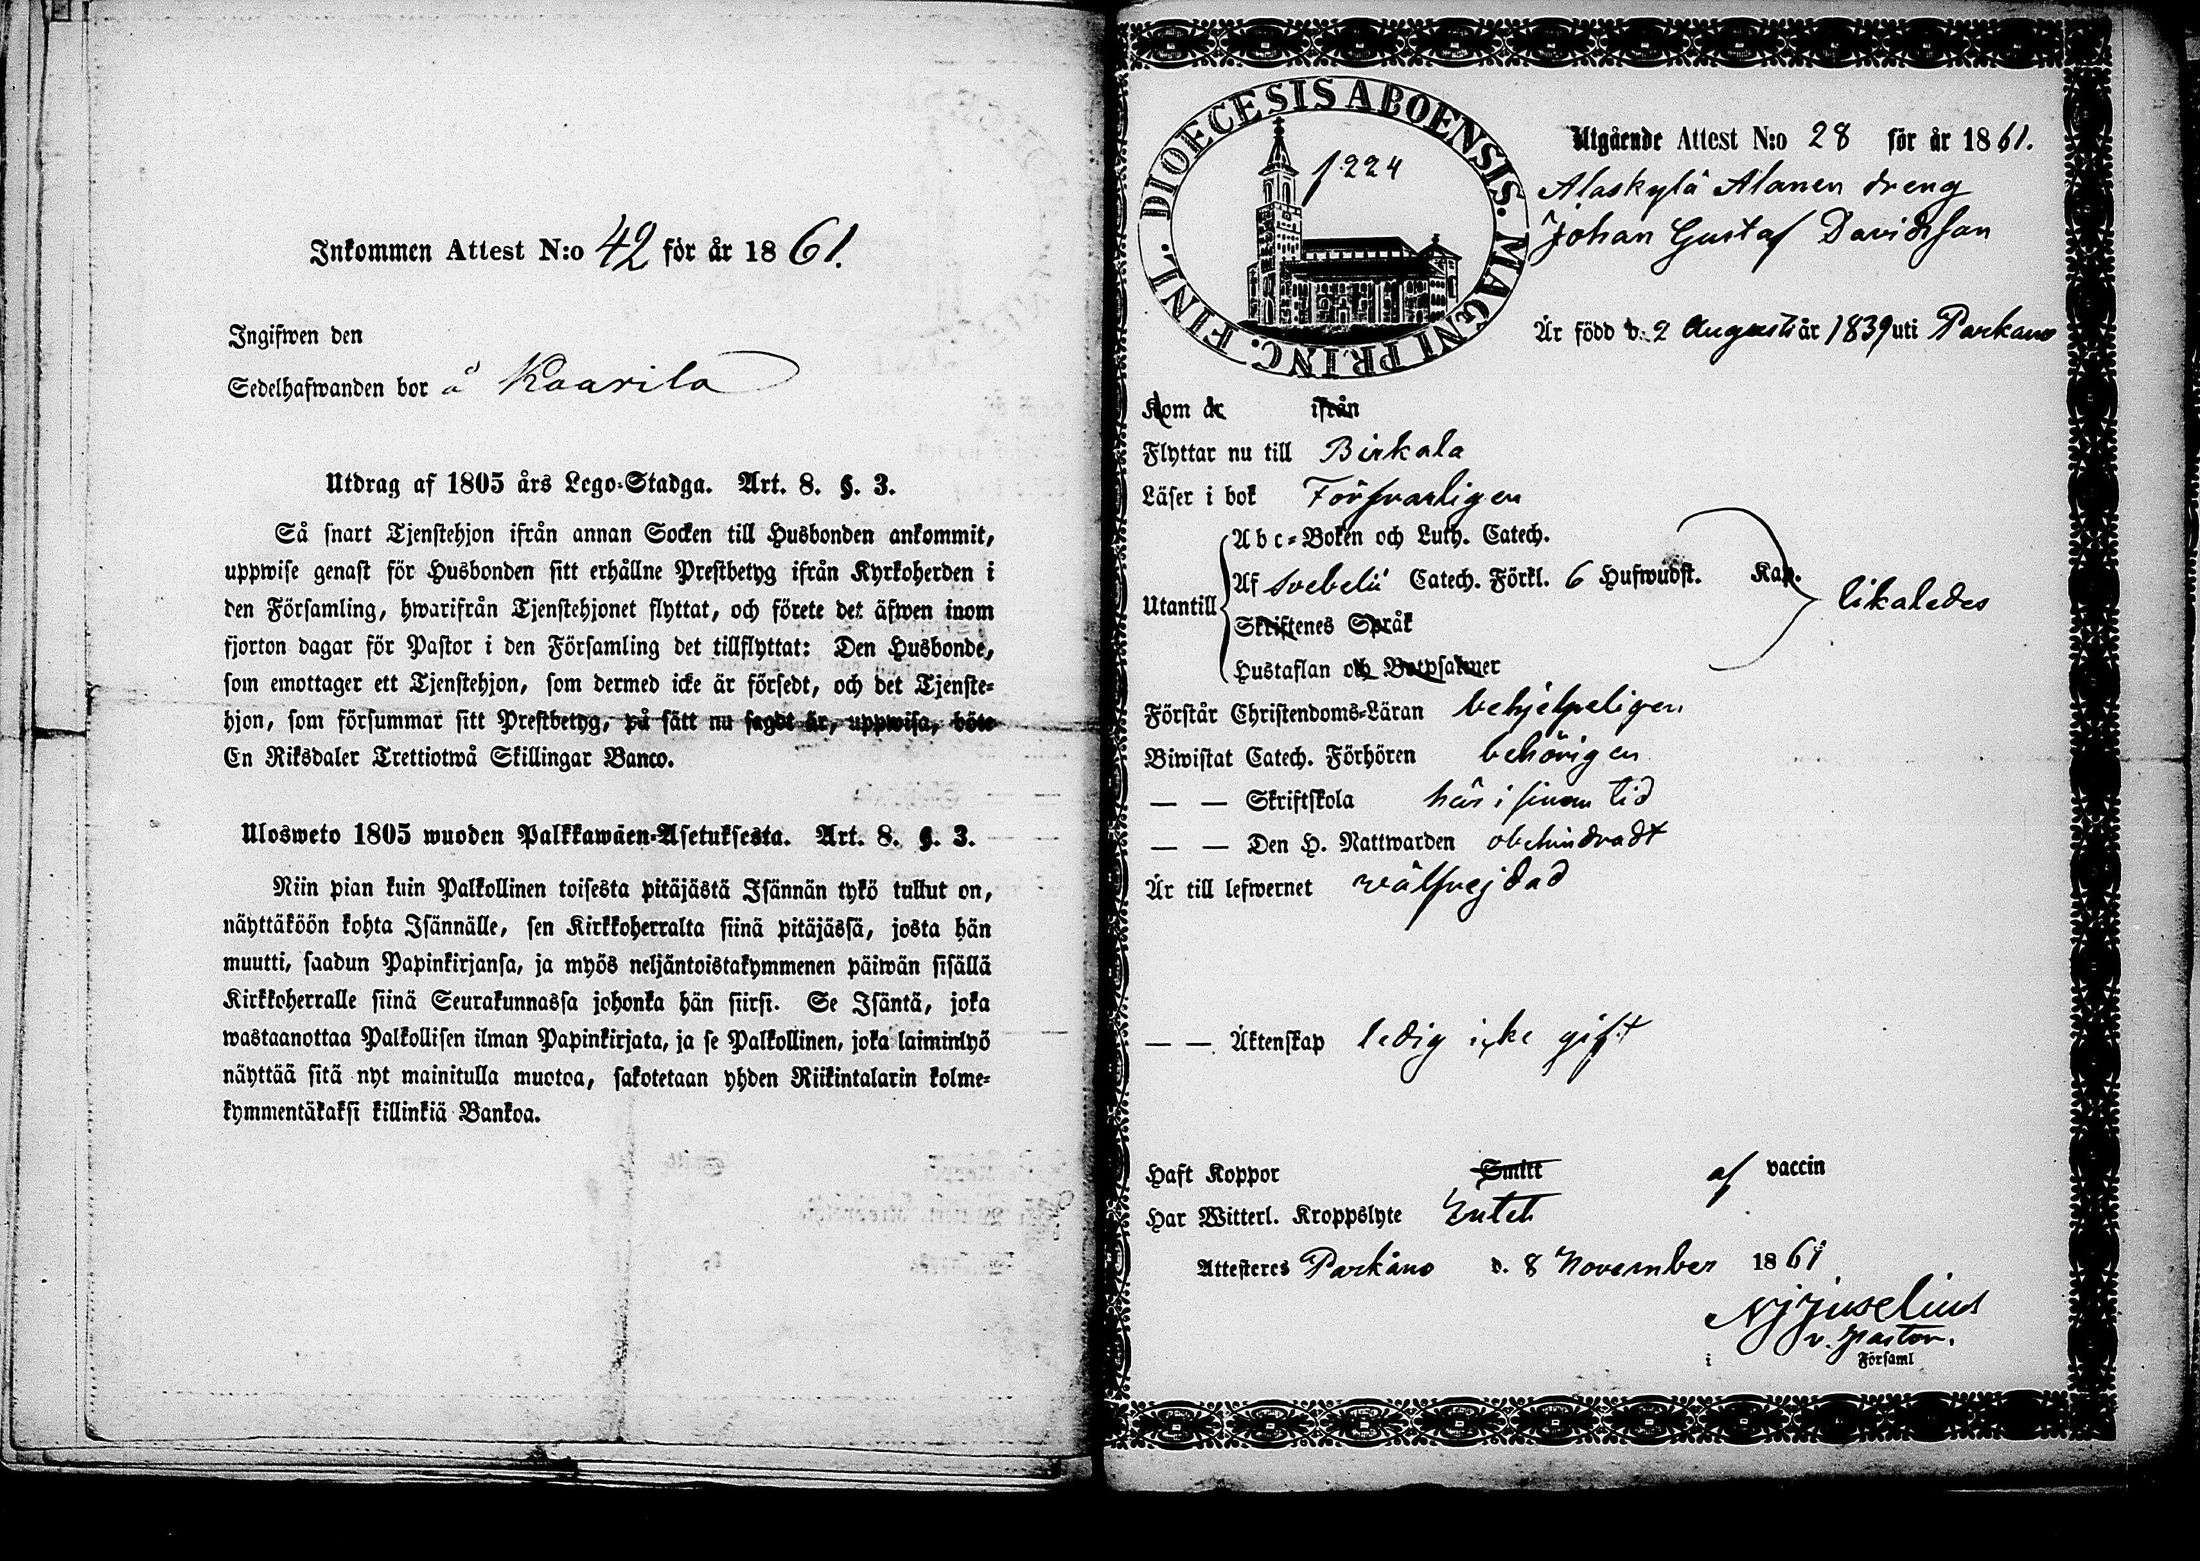 Inkommen Attest N:o 42 för år 1861.
Ingifwen den
Sedelhafwanden bor å Kaarila
Utdrag af 1805 års Lego-Stadga. Art. 8. §. 3.
Så snart Tjenstehjon ifrån annan Socken till Husbonden ankommit,
uppwise genast för Husbonden sitt erhållne Prestbetyg ifrån Kyrkoherden i
den Församling, hwarifrån Tjenstehjonet flyttat, och förete det äfwen inom
fjorton dagar för Pastor i den Församling det tillflyttat: Den Husbonde,
som emottager ett Tjenstehjon, som dermed icke är försedt, och det Tjenste-
hjon, som försummar sitt Prestbetyg, på sätt nu sagdt är, uppwisa, böte
En Riksdaler Trettiotwå Skillingar Banco.
Ulosweto 1805 wuoden Palkkawäen-Asetuksesta. Art. 8. §. 3.
Niin pian kuin Palkollinen toisesta pitäjästä Isännän tykö tullut on,
näyttäköön kohta Isännälle, sen Kirkkoherralta siinä pitäjässä, josta hän
muutti, saadun Papinkirjansa, ja myös neljäntoistakymmenen päiwän sisällä
Kirkkoherralle siinä Seurakunnassa johonka hän siirsi. Se Isäntä, joka
wastaanottaa Palkollisen ilman Papinkirjata, ja se Palkollinen, joka laiminlyö
näyttää sitä nyt mainitulla muotoa, sakotetaan yhden Riikintalarin kolme-
kymmentäkaksi killinkiä Bankoa.
DIOECESIS ABOENSIS. MAGNI PRINC. FINL.
f. 224
Utgående Attest N:o 28 för år 1861.
Alaskylä Alanen dreng
Johan Gustaf Davidsson
Är född d. 2 Augusti år 1839 uti Parkano
Kom år ifrån
Flyttar nu till Birkala
Läser i bok Försvarligen
Utantill
Abc-Boken och Luth. Catech.
Af Svebelii Catech. Förkl. 6 Hufwudst. Kap.
Skriftenes Språk
Hustaflan och Botpsalmer
likaledes
Förstår Christendoms-Läran behjelpeligen
Biwistat Catech. Förhören behörigen
— — Skriftskola här i sinom tid
— — Den H. Nattwarden obehindradt
Är till lefwernet wälfrejdad
— — Äktenskap ledig icke gift
Haft Koppor Smitt af vaccin
Har Witterl. Kroppslyte Intet
Attesteres Parkano d. 8 November 1861
NJ Juselius
v. Pastor.
i Församl